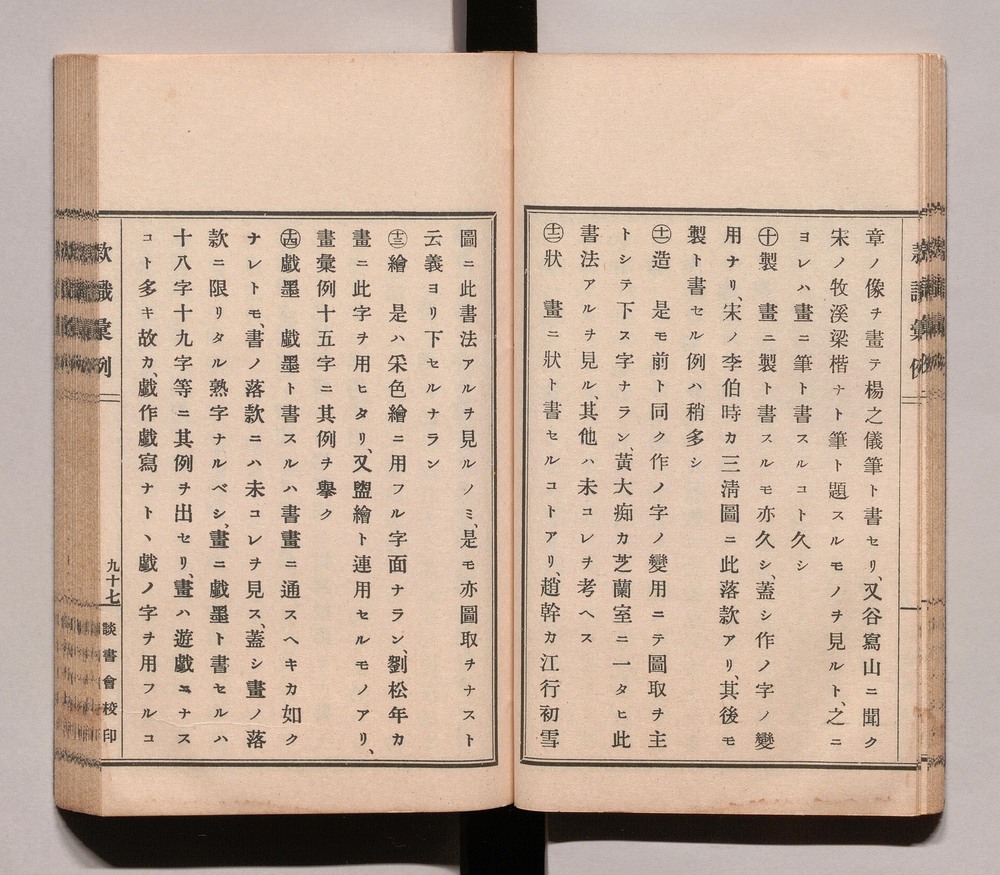 章ノ像ヲ畫テ楊之儀筆ト書セリ、又谷寫山ニ聞ク
宋ノ牧溪梁楷ナト筆ト題スルモノヲ見ルト、之ニ
ヨレハ畫ニ筆ト書スルコト久シ
㊉製　畫ニ製ト書スルモ亦久シ、蓋シ作ノ字ノ變
用ナリ、宋ノ李伯時カ三淸圖ニ此落款アリ、其後モ
製ト書セル例ハ稍多シ
十一造　是モ前ト同ク作ノ字ノ變用ニテ圖取ヲ主
トシテ下ス字ナラン、黃大痴カ芝蘭室ニ一タヒ此
書法アルヲ見ル、其他ハ未コレヲ考ヘス
十二狀　畫ニ狀ト書セルコトアリ、趙幹カ江行初雪
圖ニ此書法アルヲ見ルノミ、是モ亦圖取ヲナスト
云義ヨリ下セルナラン
十三繪　是ハ采色繪ニ用フル字面ナラン、劉松年カ
畫ニ此字ヲ用ヒタリ、又盥繪ト連用セルモノアリ、
畫彙例十五字ニ其例ヲ擧ク
十四戯墨　戯墨ト書スルハ書畫ニ通スヘキカ如ク
ナレトモ、書ノ落款ニハ未コレヲ見ス、蓋シ畫ノ落
款ニ限リタル熟字ナルベシ、畫ニ戯墨ト書セルハ
十八字十九字等ニ其例ヲ出セリ、畫ハ遊戯ニナス
コト多キ故カ、戯作戯寫ナト丶戯ノ字ヲ用フルコ
款識彙例
九十七
談書會校印